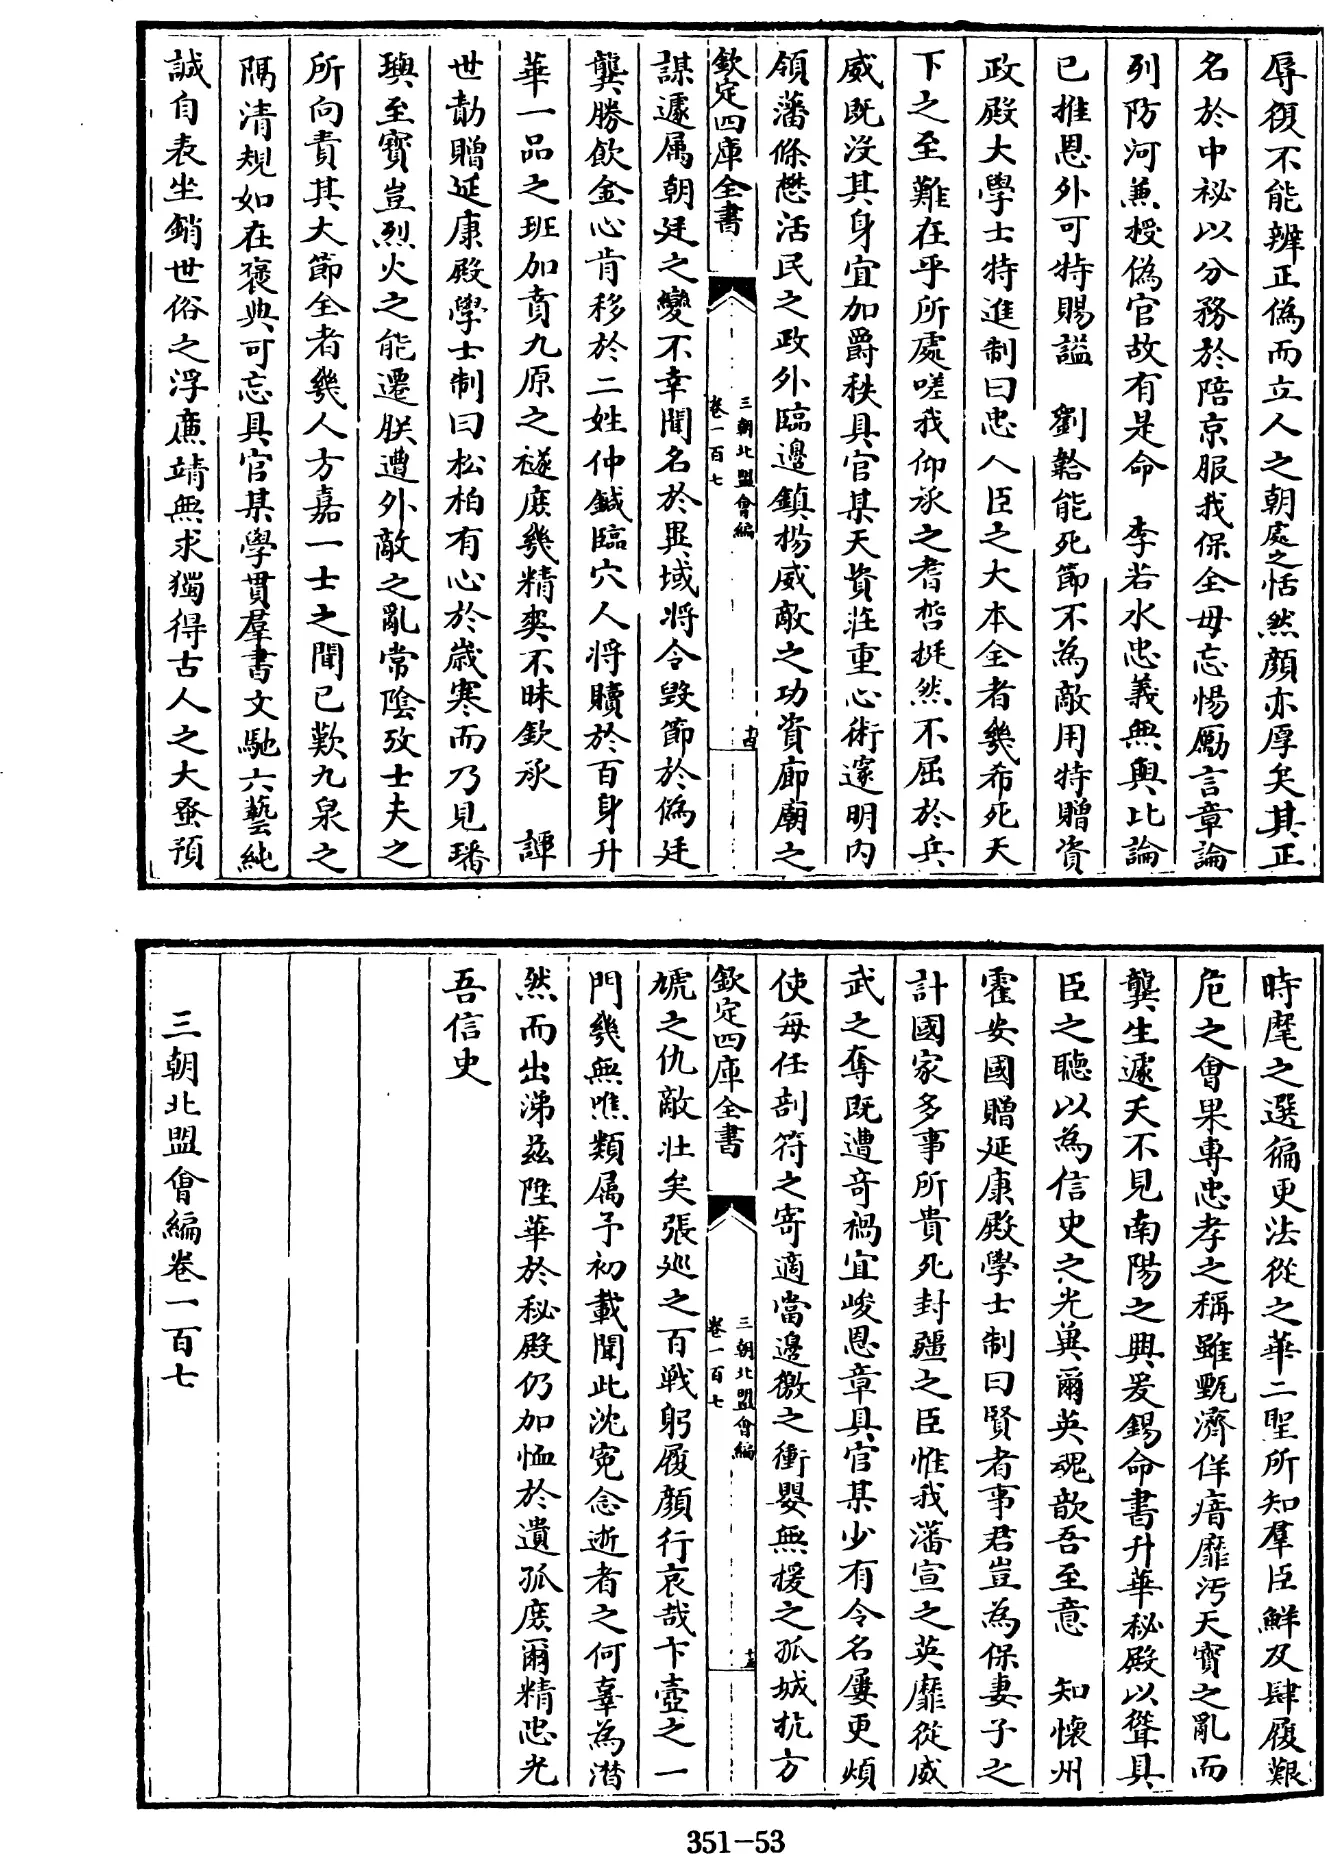 辱復不能辨正偽而立人之朝處之恬然顔亦厚矣其正
名於中祕以分務於陪京服我保全毋忘惕勵言章論
列防河兼授偽官故有是命　李若水忠義無與比論
已推恩外可特賜謚　劉韐能死節不為敵用特贈資
政殿大學士特進制曰忠人臣之大本全者幾希死天
下之至難在乎所處嗟我仰承之耆哲挺然不屈於兵
威既没其身宜加爵秩具官某天資莊重心術邃明内
領藩條懋活民之政外臨邊鎮揚威敵之功資廊廟之
欽定四庫全書
三朝北盟會編
卷一百七
十四
謀遽属朝廷之變不幸聞名於異域将令毁節於偽廷
龔勝飲金心肯移於二姓仲鍼臨穴人将贖於百身升
華一品之班加賁九原之禭庶幾精爽不昧欽承　譚
世勣贈延康殿學士制曰松柏有心於歲寒而乃見璠
璵至寳豈烈火之能遷朕遭外敵之亂常陰攷士夫之
所向責其大節全者幾人方嘉一士之聞已歎九泉之
隔清規如在褒典可忘具官某學貫羣書文馳六藝純
誠自表坐銷世俗之浮㢘靖無求獨得古人之大蚤預
時髦之選徧更法從之華二聖所知羣臣鮮及肆履艱
危之會果專忠孝之稱雖甄濟佯瘖靡汚天寳之亂而
龔生遽夭不見南陽之興爰錫命書升華秘殿以聳具
臣之聽以為信史之光冀爾英魂歆吾至意　知懷州
霍安國贈延康殿學士制曰賢者事君豈為保妻子之
計國家多事所貴死封疆之臣惟我藩宣之英靡從威
武之奪既遭奇禍宜峻恩章具官某少有令名屢更煩
使每任剖符之寄適當邊徼之衝嬰無援之孤城抗方
欽定四庫全書
三朝北盟會編
卷一百七
十五
虓之仇敵壯矣張巡之百戰躬履顔行哀哉卞壼之一
門幾無噍類属予初載聞此沈寃念逝者之何辜為潸
然而出涕兹陞華於秘殿仍加恤於遺孤庶爾精忠光
吾信史
三朝北盟會編卷一百七
351-53